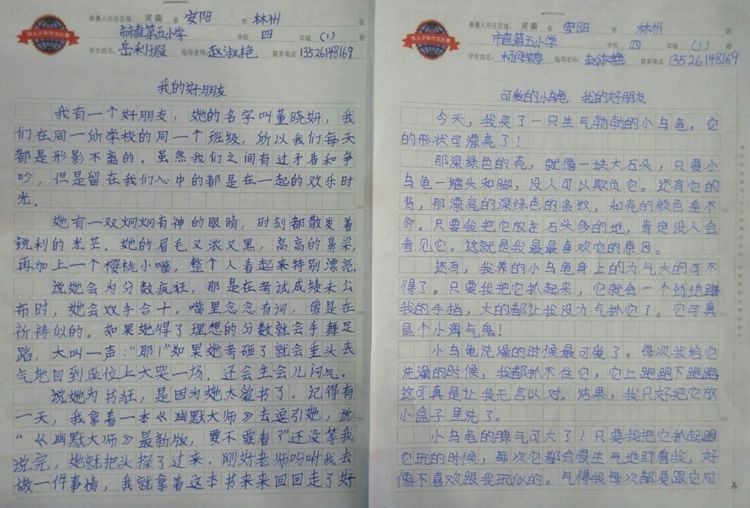 参赛人所在区域： 河南 省 安阳 市 林州 区
市直第五小学 学校 四 年级 （1） 班
学生姓名： 岳利瑕 指导老师： 赵淑艳 联系电话 13526148169
我的好朋友
我有一个好朋友，她的名字叫董晓妍，我
们在同一所学校的同一个班级，所以我们每天
都是形影不离的。虽然我们之间有过矛盾和争
吵，但是留在我们心中的都是在一起的欢乐时
光。
她有一双炯炯有神的眼睛，时刻都散发着
锐利的光芒。她的眉毛又浓又黑，高高的鼻梁，
再加上一个樱桃小嘴，整个人看起来特别漂亮。
说她会为分数疯狂，那是在考试成绩未公
布时，她会双手合十，嘴里念念有词，像是在
祈祷似的。如果她得了理想的分数就会手舞足
蹈，大叫一声：“耶！”如果她考砸了就会垂头丧
气地回到座位上大哭一场，还会生会儿闷气。
说她为书狂，是因为她太爱书了。记得有
一天，我拿着一本《幽默大师》去逗引她，说：
“《幽默大师》最新版，要不要看？”还没等我
说完，她就把头探了过来。刚好老师吩咐我去
做一件事情，我就拿着这本书来来回回走了好
参赛人所在区域： 河南 省 安阳 市 林州 区
市直第五小学 学校 四 年级 （1） 班
学生姓名： 指导老师： 赵淑艳 联系电话 13526148169
可爱的小乌龟 我的好朋友
今天，我买了一只生气勃勃的小乌龟，它
的形状可漂亮了！
那深绿色的壳，就像一块大石头，只要小
乌龟一缩头和脚，没人可以欺负它。还有它的
背，那漂亮的深绿色的条纹，和壳的颜色差不
多。只要我把它放在石头多的地，肯定没人会
看见它。这就是我最最喜欢它的原因。
还有，我养的小乌龟身上的力气大的可不
得了。只要我把它抓起来，它就会一个劲地蹬
我的手指，大的都让我没力气抓它了。它可真
是个小淘气鬼！
小乌龟洗澡的时候最可爱了。每次我给它
洗澡的时候，我都抓不住它，它上跑跑下跑跑
这可真是让我无言以对。结果，我只好把它放
小盒子里洗了。
小乌龟的脾气可大了！只要我把它抓起跟
它玩的时候，每次它都会慢生气地盯着我，好
像不喜欢跟我玩似的。气得我每次都要跟它对